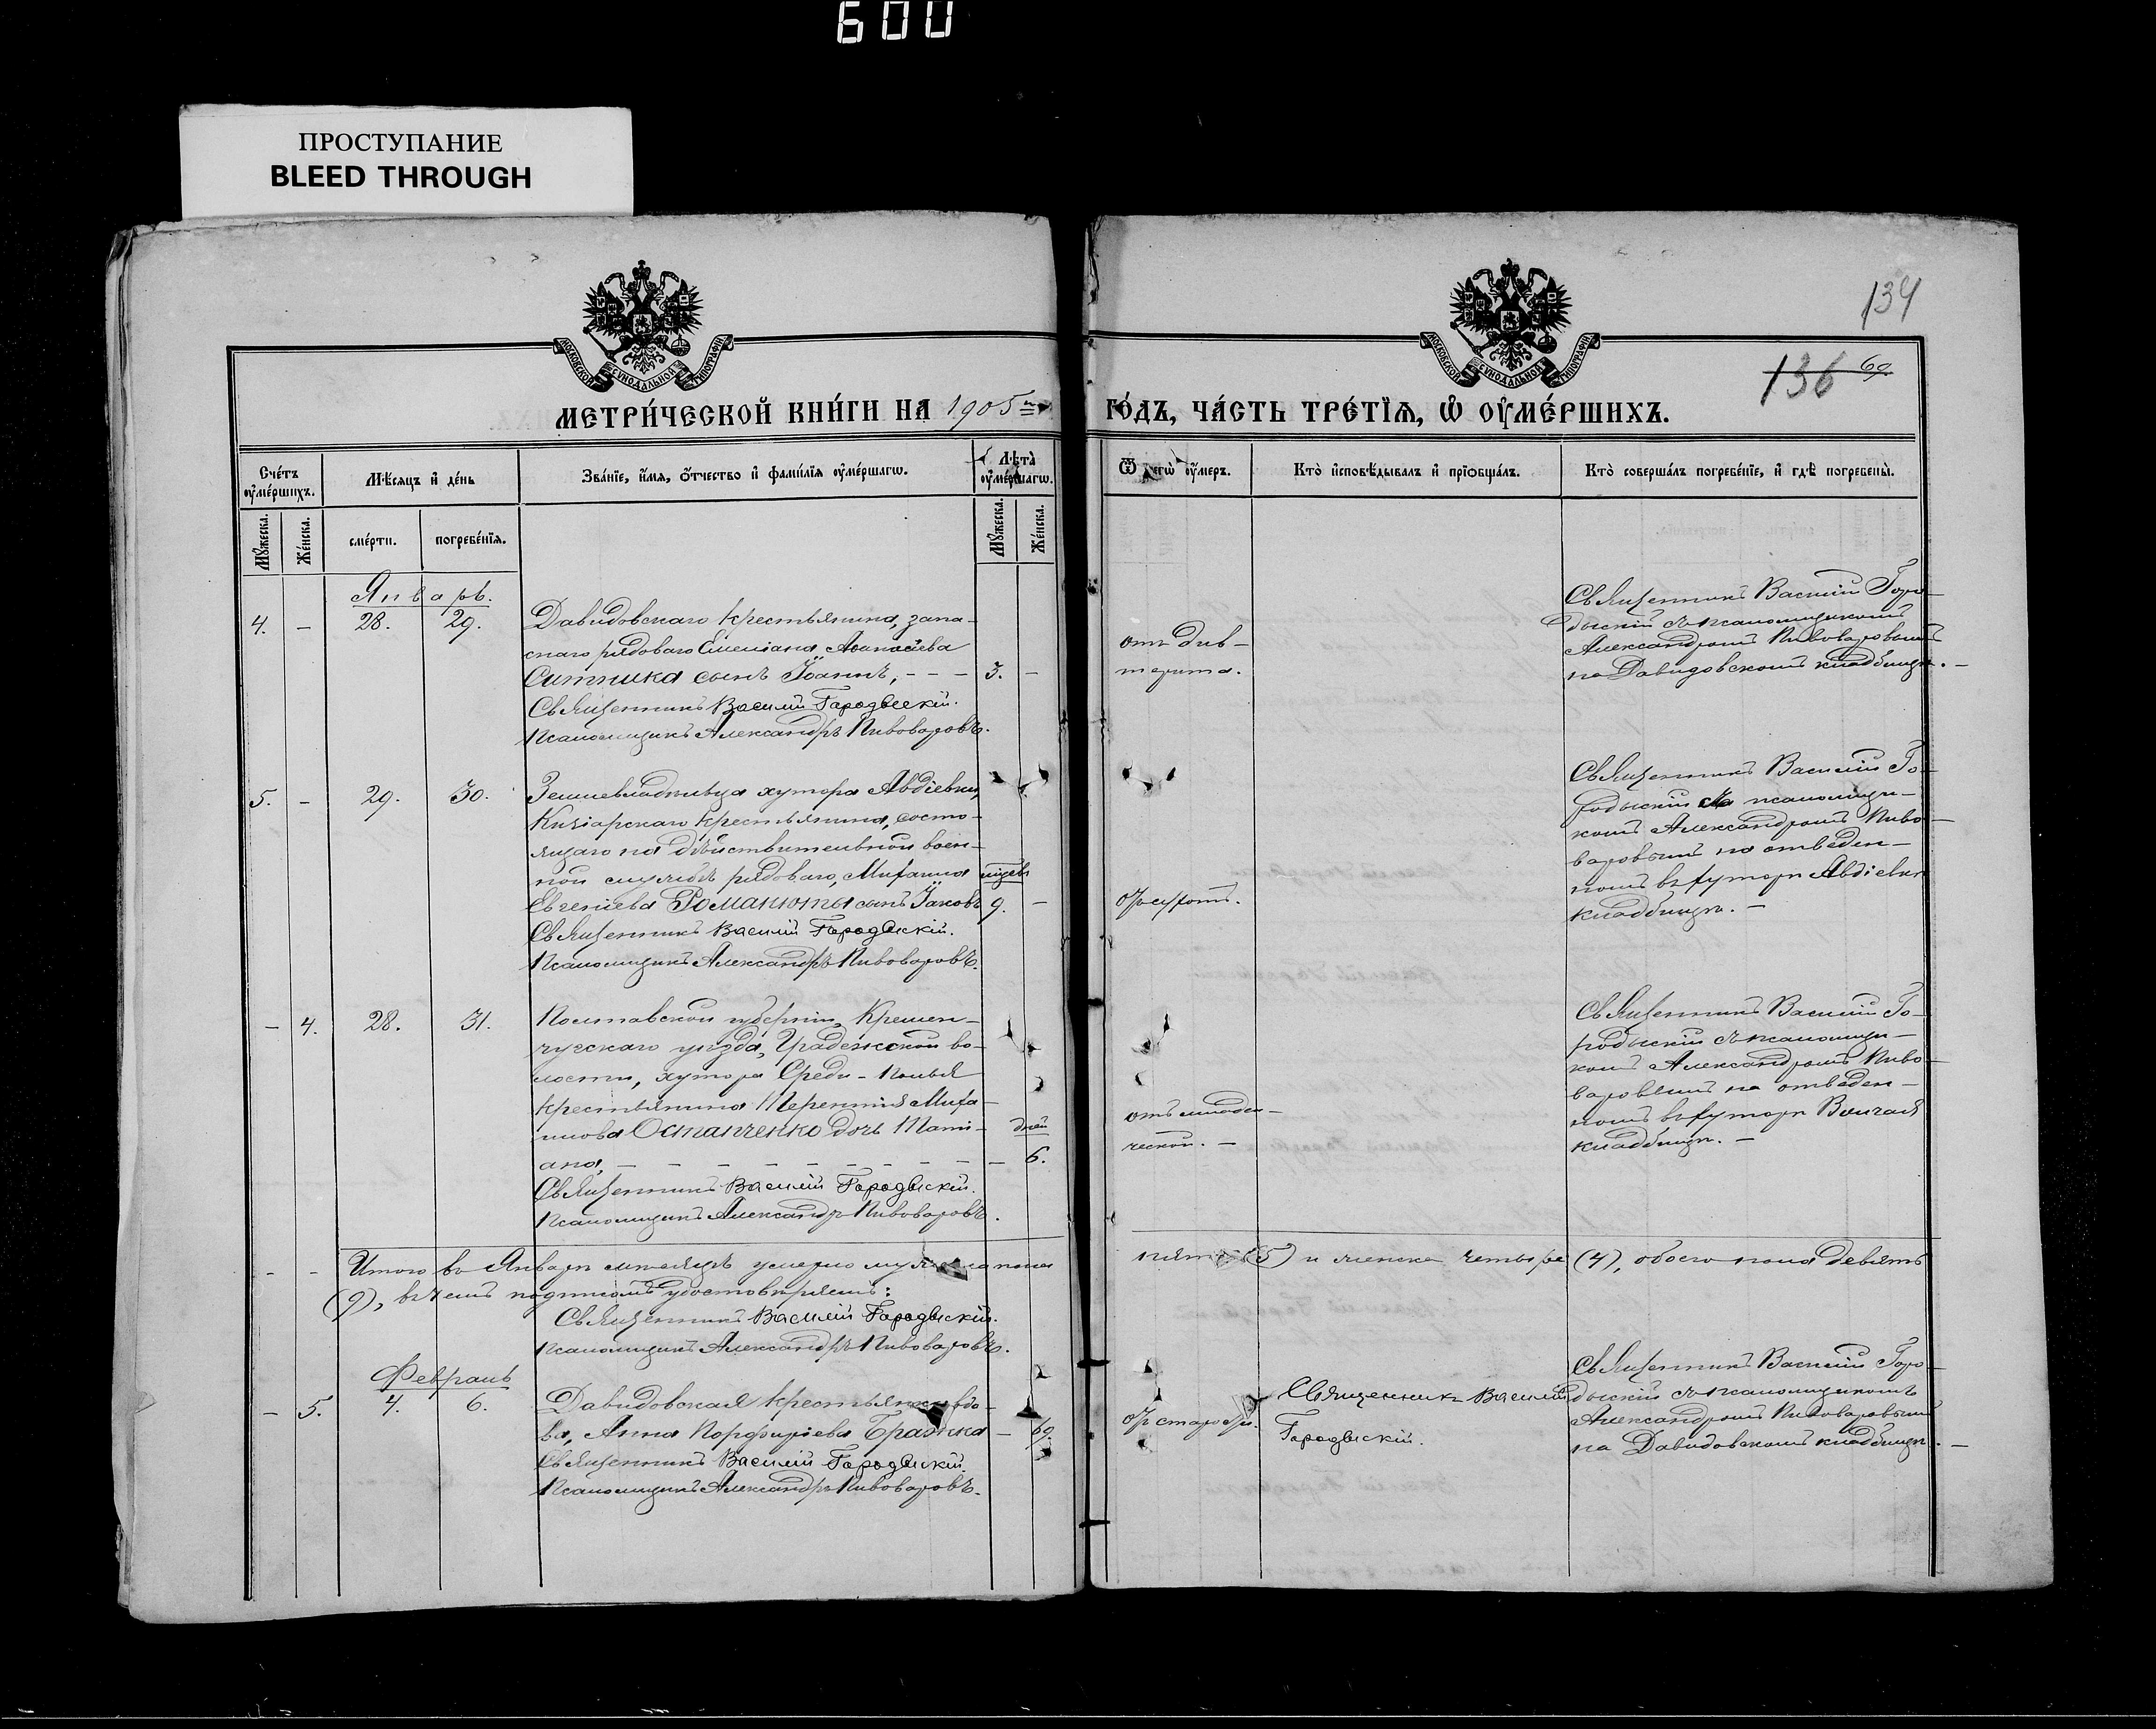 600
ПРОСТУПАНИЕ
BLEED THROUGH
134
136 69.
МОСКОВСКОЙ СѴНОДАЛЬНОЙ ТИПОГРАФІИ
МОСКОВСКОЙ СѴНОДАЛЬНОЙ ТИПОГРАФІИ
МЕТРИ́ЧЕСКОЙ КНИ́ГИ НА 1905 й
ГО́ДЪ, ЧА́СТЬ ТРЕ́ТЇѦ, Ѽ ОУ҆МЕ́РШИХЪ.
Сче́тъ оу҆ме́ршихъ.
Мѣ́сяцъ и҆ де́нь
Зва́нїе, и҆́мѧ, ѻ҆́тчество и҆ фами́лїѧ оу҆ме́ршагѡ.
Лѣ́та оу҆ме́ршагѡ.
Ѿ чегѡ̀ оу҆́меръ.
Кто̀ и҆сповѣ́дывалъ и҆ прїѡбща́лъ.
Кто̀ соверша́лъ погребе́нїе, и҆ гдѣ̀ погребены̀.
Мꙋ́жеска.
Же́нска.
сме́рти.
погребе́нїѧ.
Мꙋ́жеска.
Же́нска.
Январь.
4. – 28. 29.
Давидовскаго крестьянина, запа-
снаго рядоваго Емеліана Аѳанасіева
Ситника сынъ Іоаннъ, - - - 3. –
Священникъ Василій Городыскій.
Псаломщикъ Александръ Пивоваровъ.
отъ диф-
терита.
Священникъ Василій Горо-
дыскій съ псаломщикомъ
Александромъ Пивоваровымъ
на Давидовскомъ кладбищѣ. –
5. – 29. 30.
Землевладѣльца хутора Авдіевки,
крестьянина, состо-
ящаго на дѣйствительной воен-
ной службѣ рядоваго, Михаила мцевъ
Евгеніева Романюты сынъ Іаковъ 9. –
Священникъ Василій Городыскій.
Псаломщикъ Александръ Пивоваровъ.
Священникъ Василій Го-
родыскій съ псаломщи-
комъ Александромъ Пиво-
варовымъ на отведен-
номъ въ хуторѣ Авдіевкѣ
кладбищѣ. –
– 4. 28. 31.
Полтавской губерніи, Кремен-
чугскаго уѣзда, Градежской во-
лости, хутора
крестьянина Терентія Миха-
илова Остапченко дочь Тати- дней
ана, – – – – – – – – 6.
Священникъ Василій Городыскій.
Псаломщикъ Александръ Пивоваровъ.
отъ младен-
ческой. –
Священникъ Василій Го-
родыскій съ псаломщи-
комъ Александромъ Пиво-
варовымъ на отведен-
номъ въ хуторѣ
кладбищѣ. –
– – Итого въ Январѣ мѣсяцѣ умерло мужска пола
пять (5) и женска четыре (4), обоего пола девять
(9), въ чемъ подписомъ удостовѣряемъ:
Священникъ Василій Городыскій.
Псаломщикъ Александръ Пивоваровъ.
Февраль
– 5. 4. 6.
Давидовская крестьянка, вдо-
ва, Анна Порфиріева Бражка – 69.
Священникъ Василій Городыскій.
Псаломщикъ Александръ Пивоваровъ.
Священникъ Василій
Городыскій.
Священникъ Василій Горо-
дыскій съ псаломщикомъ
Александромъ Пивоваровымъ
на Давидовскомъ кладбищѣ. –